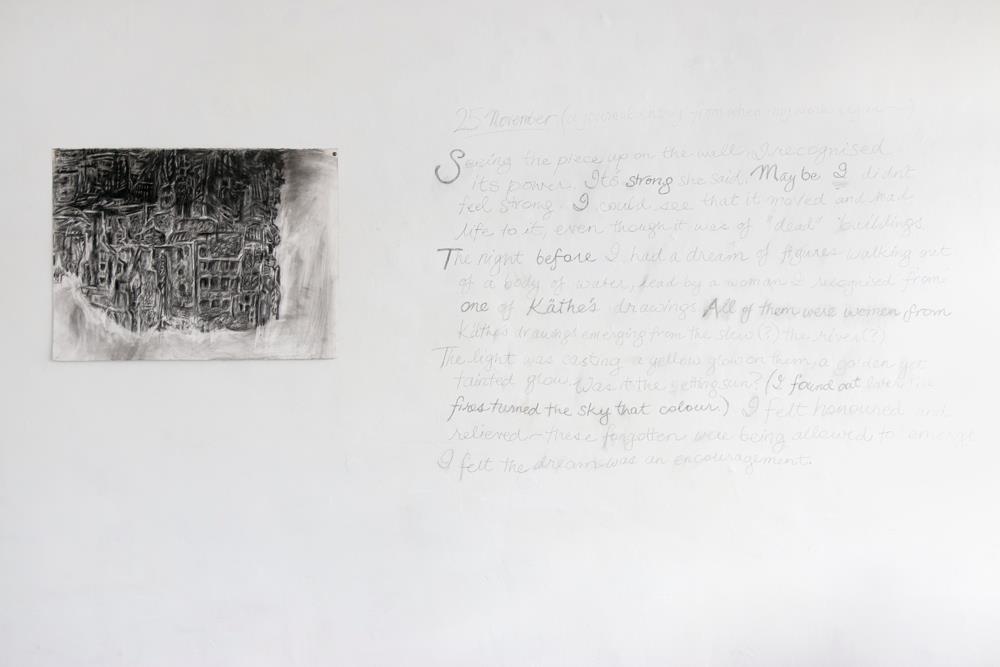 25 November (a journal entry from when my work began —)
Seeing the piece up on the wall, I recognised
its power. It's strong she said. Maybe I didn't
feel strong. I could see that it moved and had
life to it, even though it was of "dead" buildings.
The night before I had a dream of figures walking out
of a body of water, lead by a woman I recognised from
one of Käthe's drawings. All of them were women from
Käthe's drawings emerging from the slew(?) the river(?)
The light was casting a yellow glow on them, a golden yet
tainted glow. Was it the setting sun? (I found out later the
fires turned the sky that colour.) I felt honoured and
relieved - these forgotten were being allowed to emerge
I felt the dream was an encouragement.